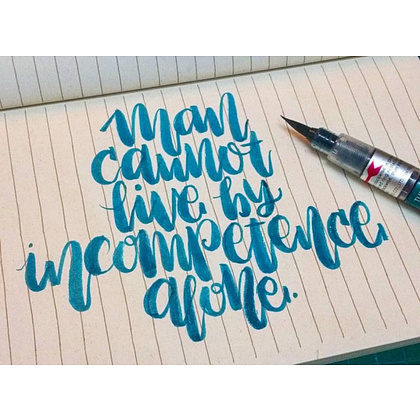 man
cannot
live by
incompetence
alone.